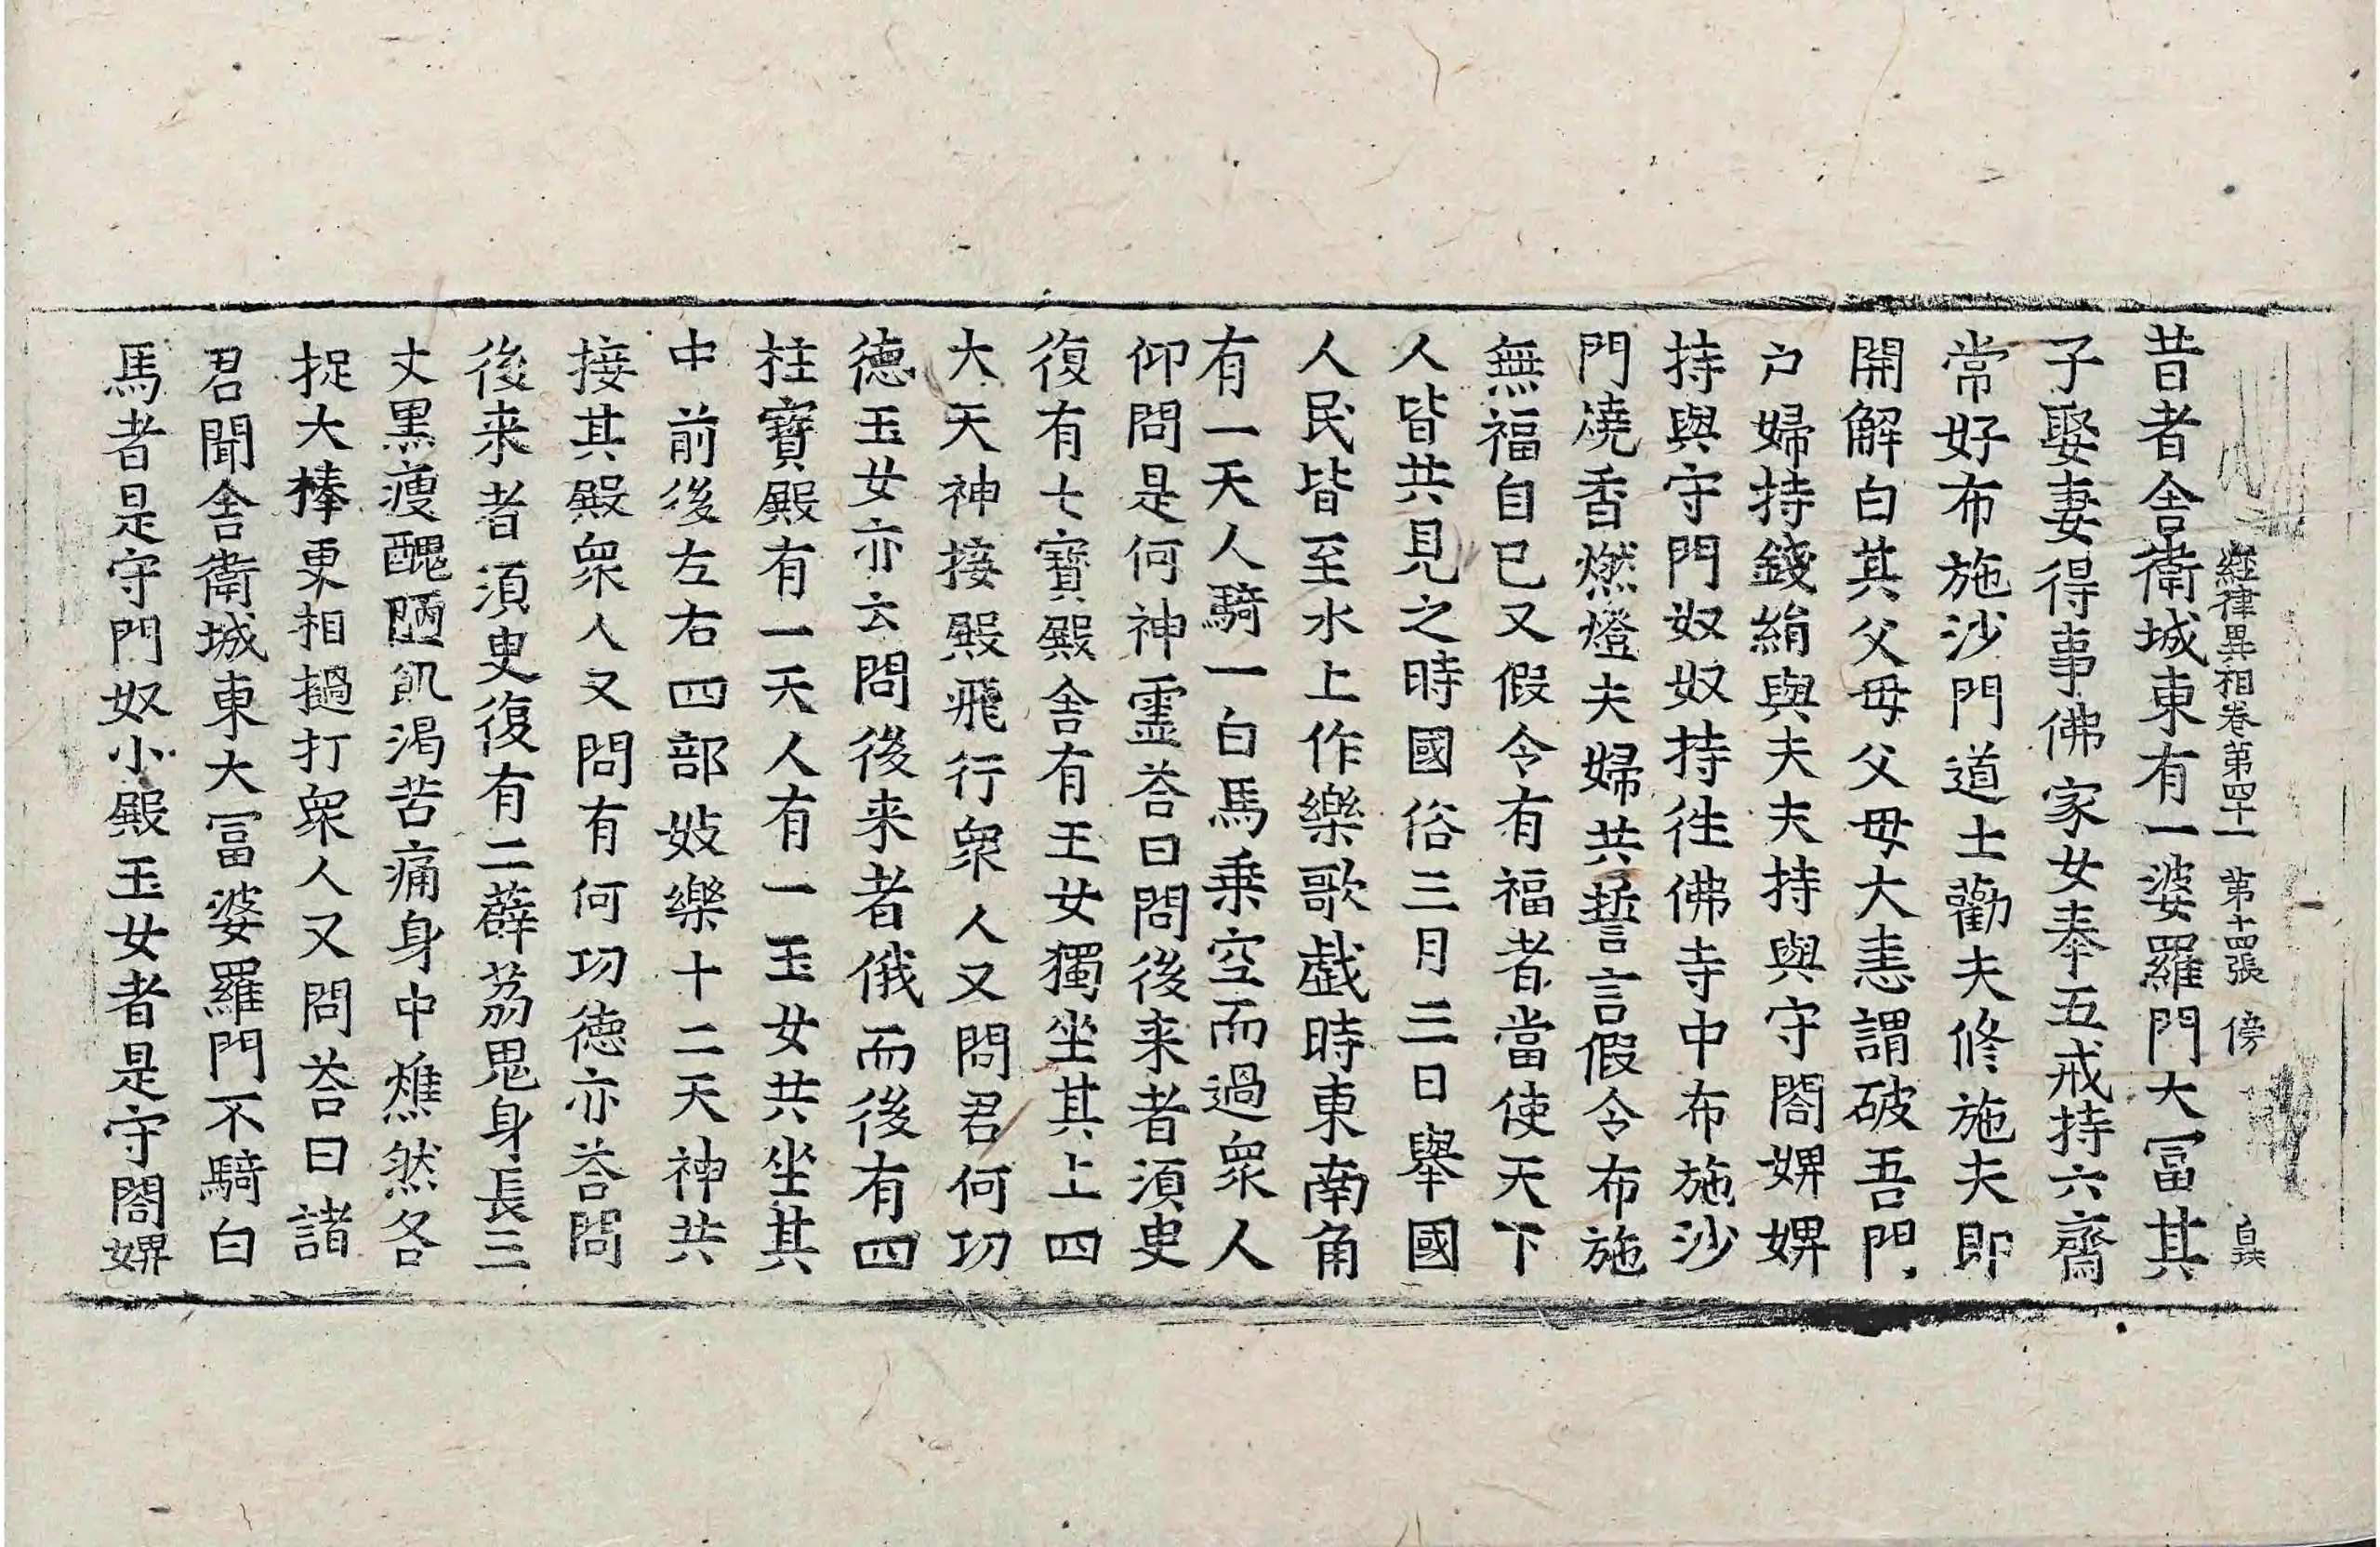 經律異相卷第四十一 第十四張 傍
昔者舎衛城東有一婆羅門大冨其
子娶妻得事佛家女奉五戒持六齋
常好布施沙門道士勸夫修施夫即
開解白其父母父母大恚謂破吾門
户婦持錢絹與夫夫持與守閤婢婢
持與守門奴奴持徃佛寺中布施沙
門燒香燃燈夫婦共誓言假令布施
無福自已又假令有福者當使天下
人皆共見之時國俗三月三日舉國
人民皆至水上作樂歌戲時東南角
有一天人騎一白馬乗空而過衆人
仰問是何神靈荅曰問後来者湏臾
復有七寳殿舎有玉女獨坐其上四
大天神接殿飛行衆人又問君何功
德玉女亦云問後来者俄而後有四
柱寳殿有一天人有一玉女共坐其
中前後左右四部妓樂十二天神共
接其殿衆人又問有何功德亦荅問
後来者湏臾復有二薜荔鬼身長三
丈黒瘦醜陋飢渇苦痛身中燋然各
捉大棒更相撾打衆人又問荅曰諸
君聞舎衛城東大冨婆羅門不騎白
馬者是守門奴小殿玉女者是守閤婢